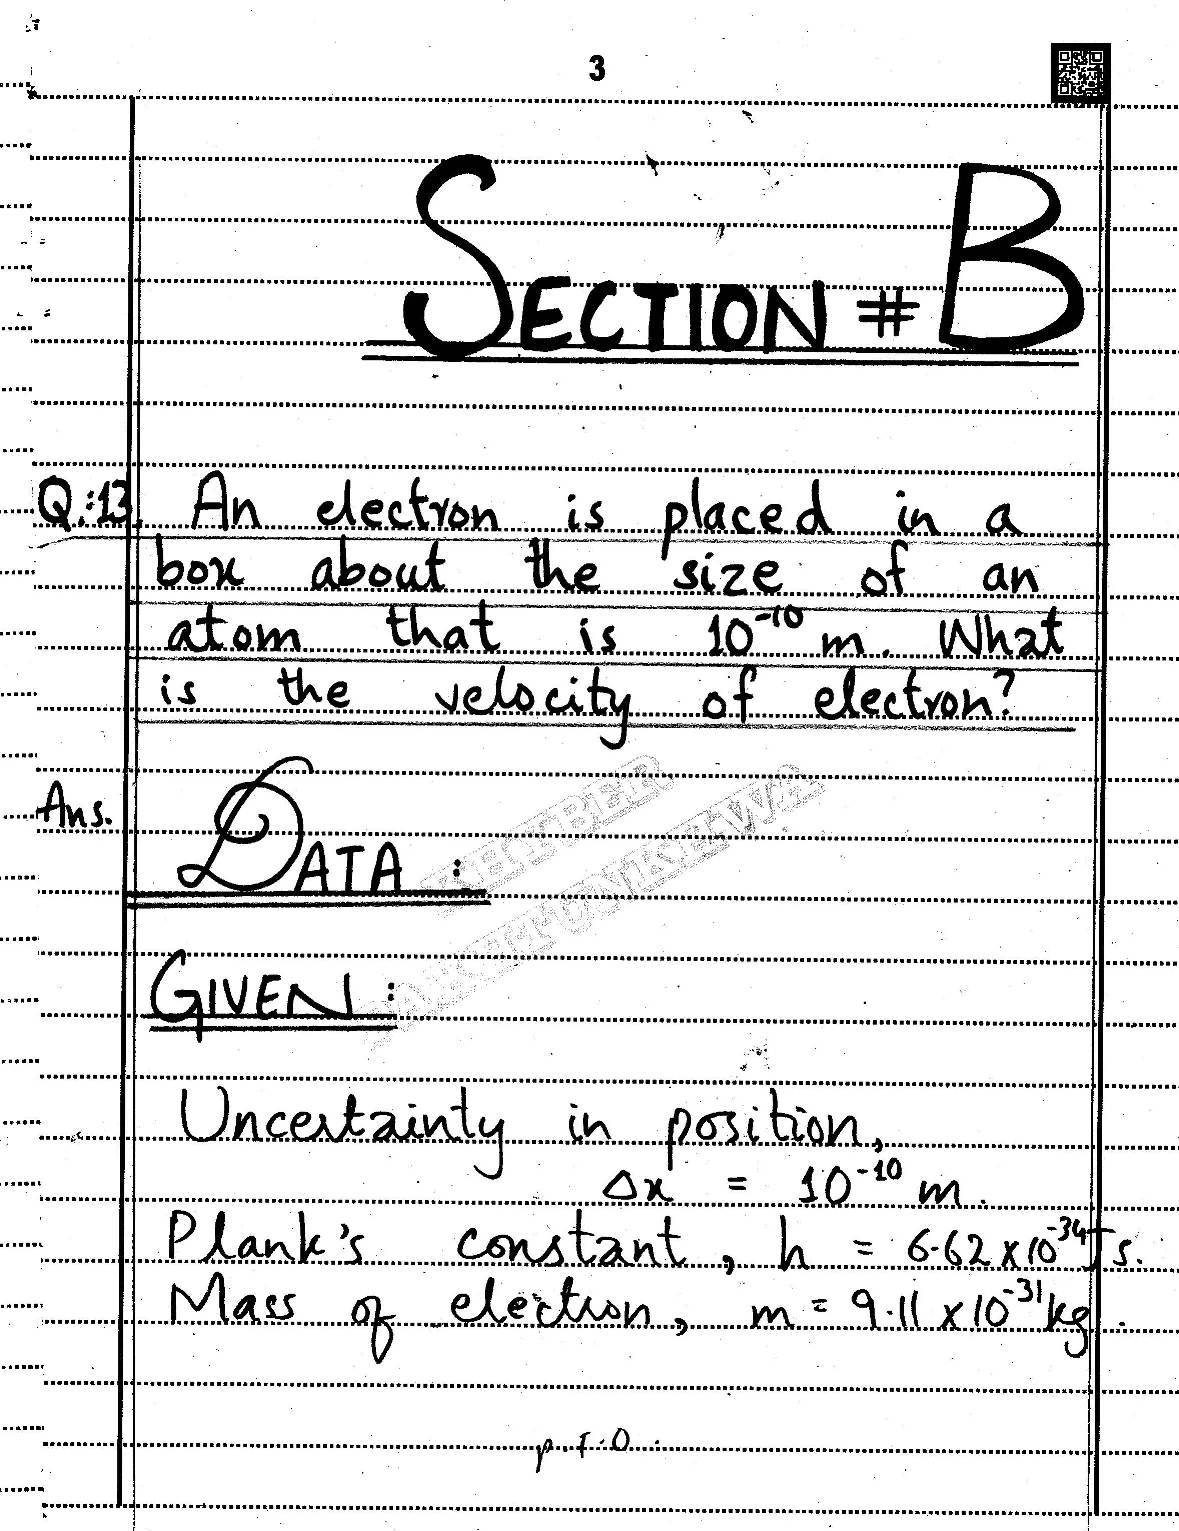 3
SECTION # B
Q.:13. An electron is placed in a
box about the size of an
atom that is 10⁻¹⁰ m. What
is the velocity of electron?
Ans. DATA :
KHYBER
PAKHTUNKHWA
GIVEN :
Uncertainty in position,
Δx = 10⁻¹⁰ m.
Plank's constant, h = 6.62 x 10⁻³⁴ Js.
Mass of electron, m = 9.11 x 10⁻³¹ kg.
P.T.O.